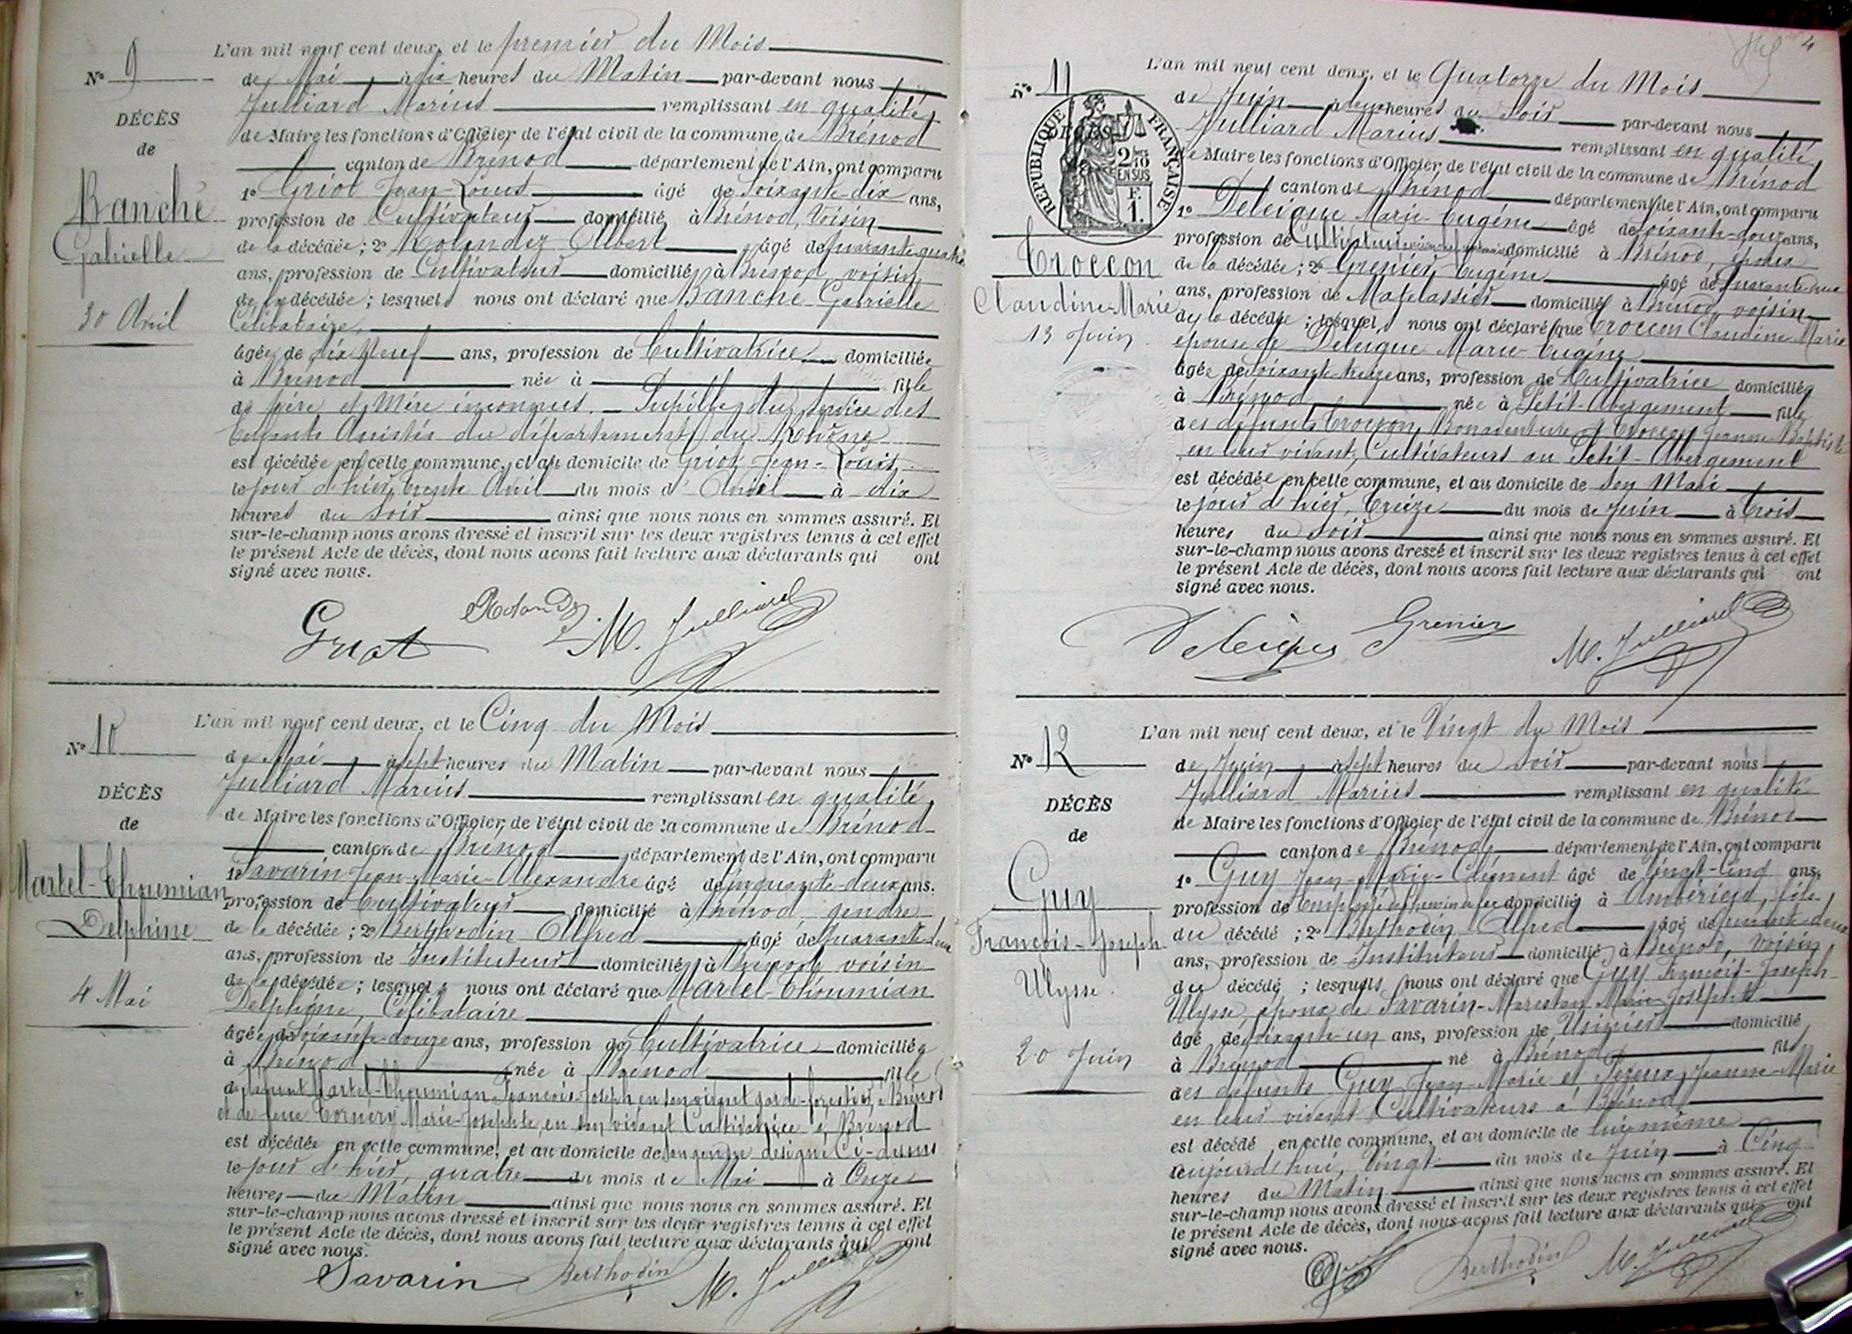 L'an mil neuf cent deux, et le premier du Mois
N° 9 de Mai à six heures du Matin par-devant nous
Julliard Marius remplissant en qualité
DÉCÈS
de Maire les fonctions d'Officier de l'état civil de la commune de Brénod
de
canton de Brénod département de l'Ain, ont comparu
1° Griot Jean-Louis âgé de soixante-dix ans,
Banche
profession de Cultivateur domicilié à Brénod, voisin
Gabrielle
de la décédée ; 2° Rolandez Albert âgé de quarante-quatre
ans, profession de Cultivateur domicilié à Brénod, voisin
30 Avril
de la décédée ; lesquels nous ont déclaré que Banche Gabrielle
Célibataire,
âgée de dix-neuf ans, profession de Cultivatrice domiciliée
à Brénod née à fille
de père et Mère inconnus. Pupille du service des
Enfants Assistés du département du Rhône
est décédée en cette commune, et au domicile de Griot Jean-Louis
le jour d'hier, trente Avril du mois d'Avril à dix
heures du soir ainsi que nous nous en sommes assuré. Et
sur-le-champ nous avons dressé et inscrit sur les deux registres tenus à cet effet
le présent Acte de décès, dont nous avons fait lecture aux déclarants qui ont
signé avec nous.
Griot Rolandez M. Julliard
L'an mil neuf cent deux, et le Cinq du Mois
N° 10 de Mai à sept heures du Matin par-devant nous
Julliard Marius remplissant en qualité
DÉCÈS
de Maire les fonctions d'Officier de l'état civil de la commune de Brénod
de
canton de Brénod département de l'Ain, ont comparu
1° Savarin Jean-Marie-Alexandre âgé de cinquante-deux ans,
Martel-Thoumian
profession de Cultivateur domicilié à Brénod, gendre
Delphine
de la décédée ; 2° Berthodin Alfred âgé de quarante-deux
ans, profession de Instituteur domicilié à Brénod voisin
4 Mai
de la décédée ; lesquels nous ont déclaré que Martel-Thoumian
Delphine, Célibataire
âgée de soixante-douze ans, profession de Cultivatrice domiciliée
à Brénod née à Brénod fille
de défunt Martel-Thoumian François-Joseph en son vivant garde-forestier, à Brénod
et de feue Cornery Marie-Josephte, en son vivant Cultivatrice à Brénod
est décédée en cette commune, et au domicile de son gendre désigné Ci-dessus
le jour d'hier, quatre du mois de Mai à Onze
heures du Matin ainsi que nous nous en sommes assuré. Et
sur-le-champ nous avons dressé et inscrit sur les deux registres tenus à cet effet
le présent Acte de décès, dont nous avons fait lecture aux déclarants qui ont
signé avec nous.
Savarin Berthodin M. Julliard
4
L'an mil neuf cent deux, et le Quatorze du Mois
N° 11 de Juin à heures du Soir par-devant nous
RÉPUBLIQUE FRANÇAISE
2/10 EN SUS
F. 1.
Julliard Marius remplissant en qualité
de Maire les fonctions d'Officier de l'état civil de la commune de Brénod
canton de Brénod département de l'Ain, ont comparu
1° Deleigue Marie-Eugène âgé de soixante-douze ans,
profession de Cultivateur domicilié à Brénod, époux
Croccon
de la décédée ; 2° Grenier Eugène âgé de quarante
Claudine-Marie
ans, profession de Matelassier domicilié à Brénod voisin
13 Juin
de la décédée ; lesquels nous ont déclaré que Croccon Claudine Marie
épouse de Deleigue Marie-Eugène
âgée de soixante-treize ans, profession de Cultivatrice domiciliée
à Brénod née à Petit-Abergement fille
des défunts Croccon Bonaventure et Croccon Jeanne-Baptiste
en leur vivant, Cultivateurs au Petit-Abergement
est décédée en cette commune, et au domicile de son Mari
le jour d'hier, Treize du mois de Juin à Trois
heures du Soir ainsi que nous nous en sommes assuré. Et
sur-le-champ nous avons dressé et inscrit sur les deux registres tenus à cet effet
le présent Acte de décès, dont nous avons fait lecture aux déclarants qui ont
signé avec nous.
Deleigue Grenier M. Julliard
L'an mil neuf cent deux, et le Vingt du Mois
N° 12 de Juin à sept heures du Soir par-devant nous
Julliard Marius remplissant en qualité
DÉCÈS
de Maire les fonctions d'Officier de l'état civil de la commune de Brénod
de
canton de Brénod département de l'Ain, ont comparu
1° Guy Jean-Marie-Clément âgé de Vingt-Cinq ans,
Guy
profession de Employé de chemin de fer domicilié à Ambérieu, fils
François-Joseph
du décédé ; 2° Berthodin Alfred âgé de quarante-deux
ans, profession de Instituteur domicilié à Brénod, Voisin
Ulysse.
du décédé ; lesquels nous ont déclaré que Guy François-Joseph-
Ulysse, époux de Savarin-Marestan Marie-Josephte
20 Juin
âgé de soixante-un ans, profession de Usinier domicilié
à Brénod né à Brénod fils
des défunts Guy Jean-Marie et Jeanne-Marie
en leur vivant Cultivateurs à Brénod
est décédé en cette commune, et au domicile de lui-même
aujourd'hui, Vingt du mois de Juin à Cinq
heures du Matin ainsi que nous nous en sommes assuré. Et
sur-le-champ nous avons dressé et inscrit sur les deux registres tenus à cet effet
le présent Acte de décès, dont nous avons fait lecture aux déclarants qui ont
signé avec nous.
Guy Berthodin M. Julliard